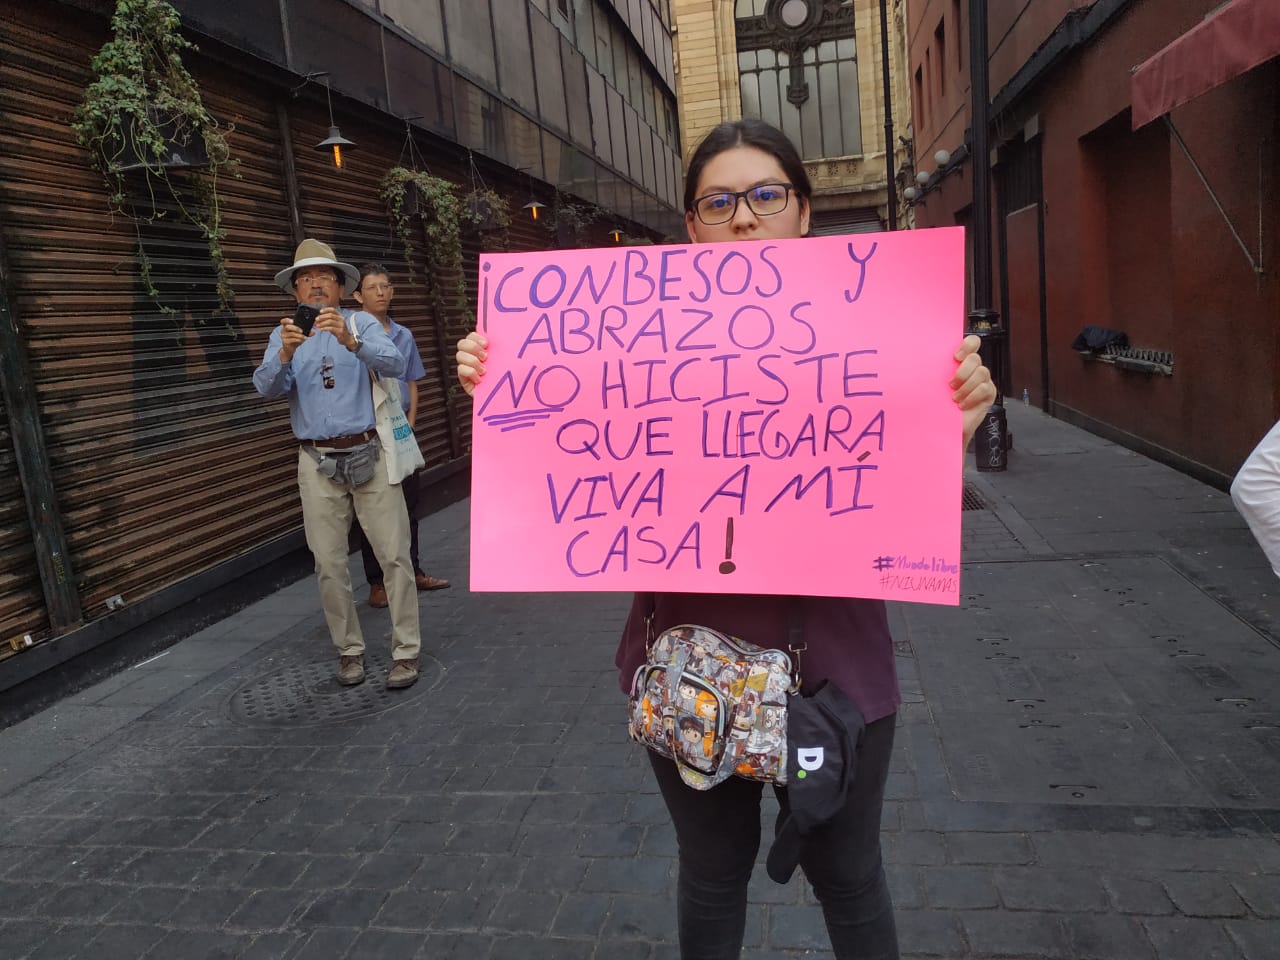 ¡CON BESOS Y
ABRAZOS
NO HICISTE
QUE LLEGARA
VIVA A MÍ
CASA!
#Mundolibre
#NIUNAMAS
D.